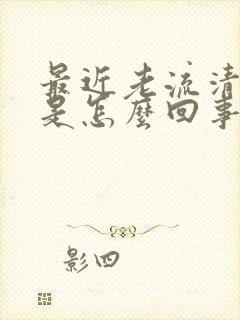 最近老流清
是怎麼回事
影四